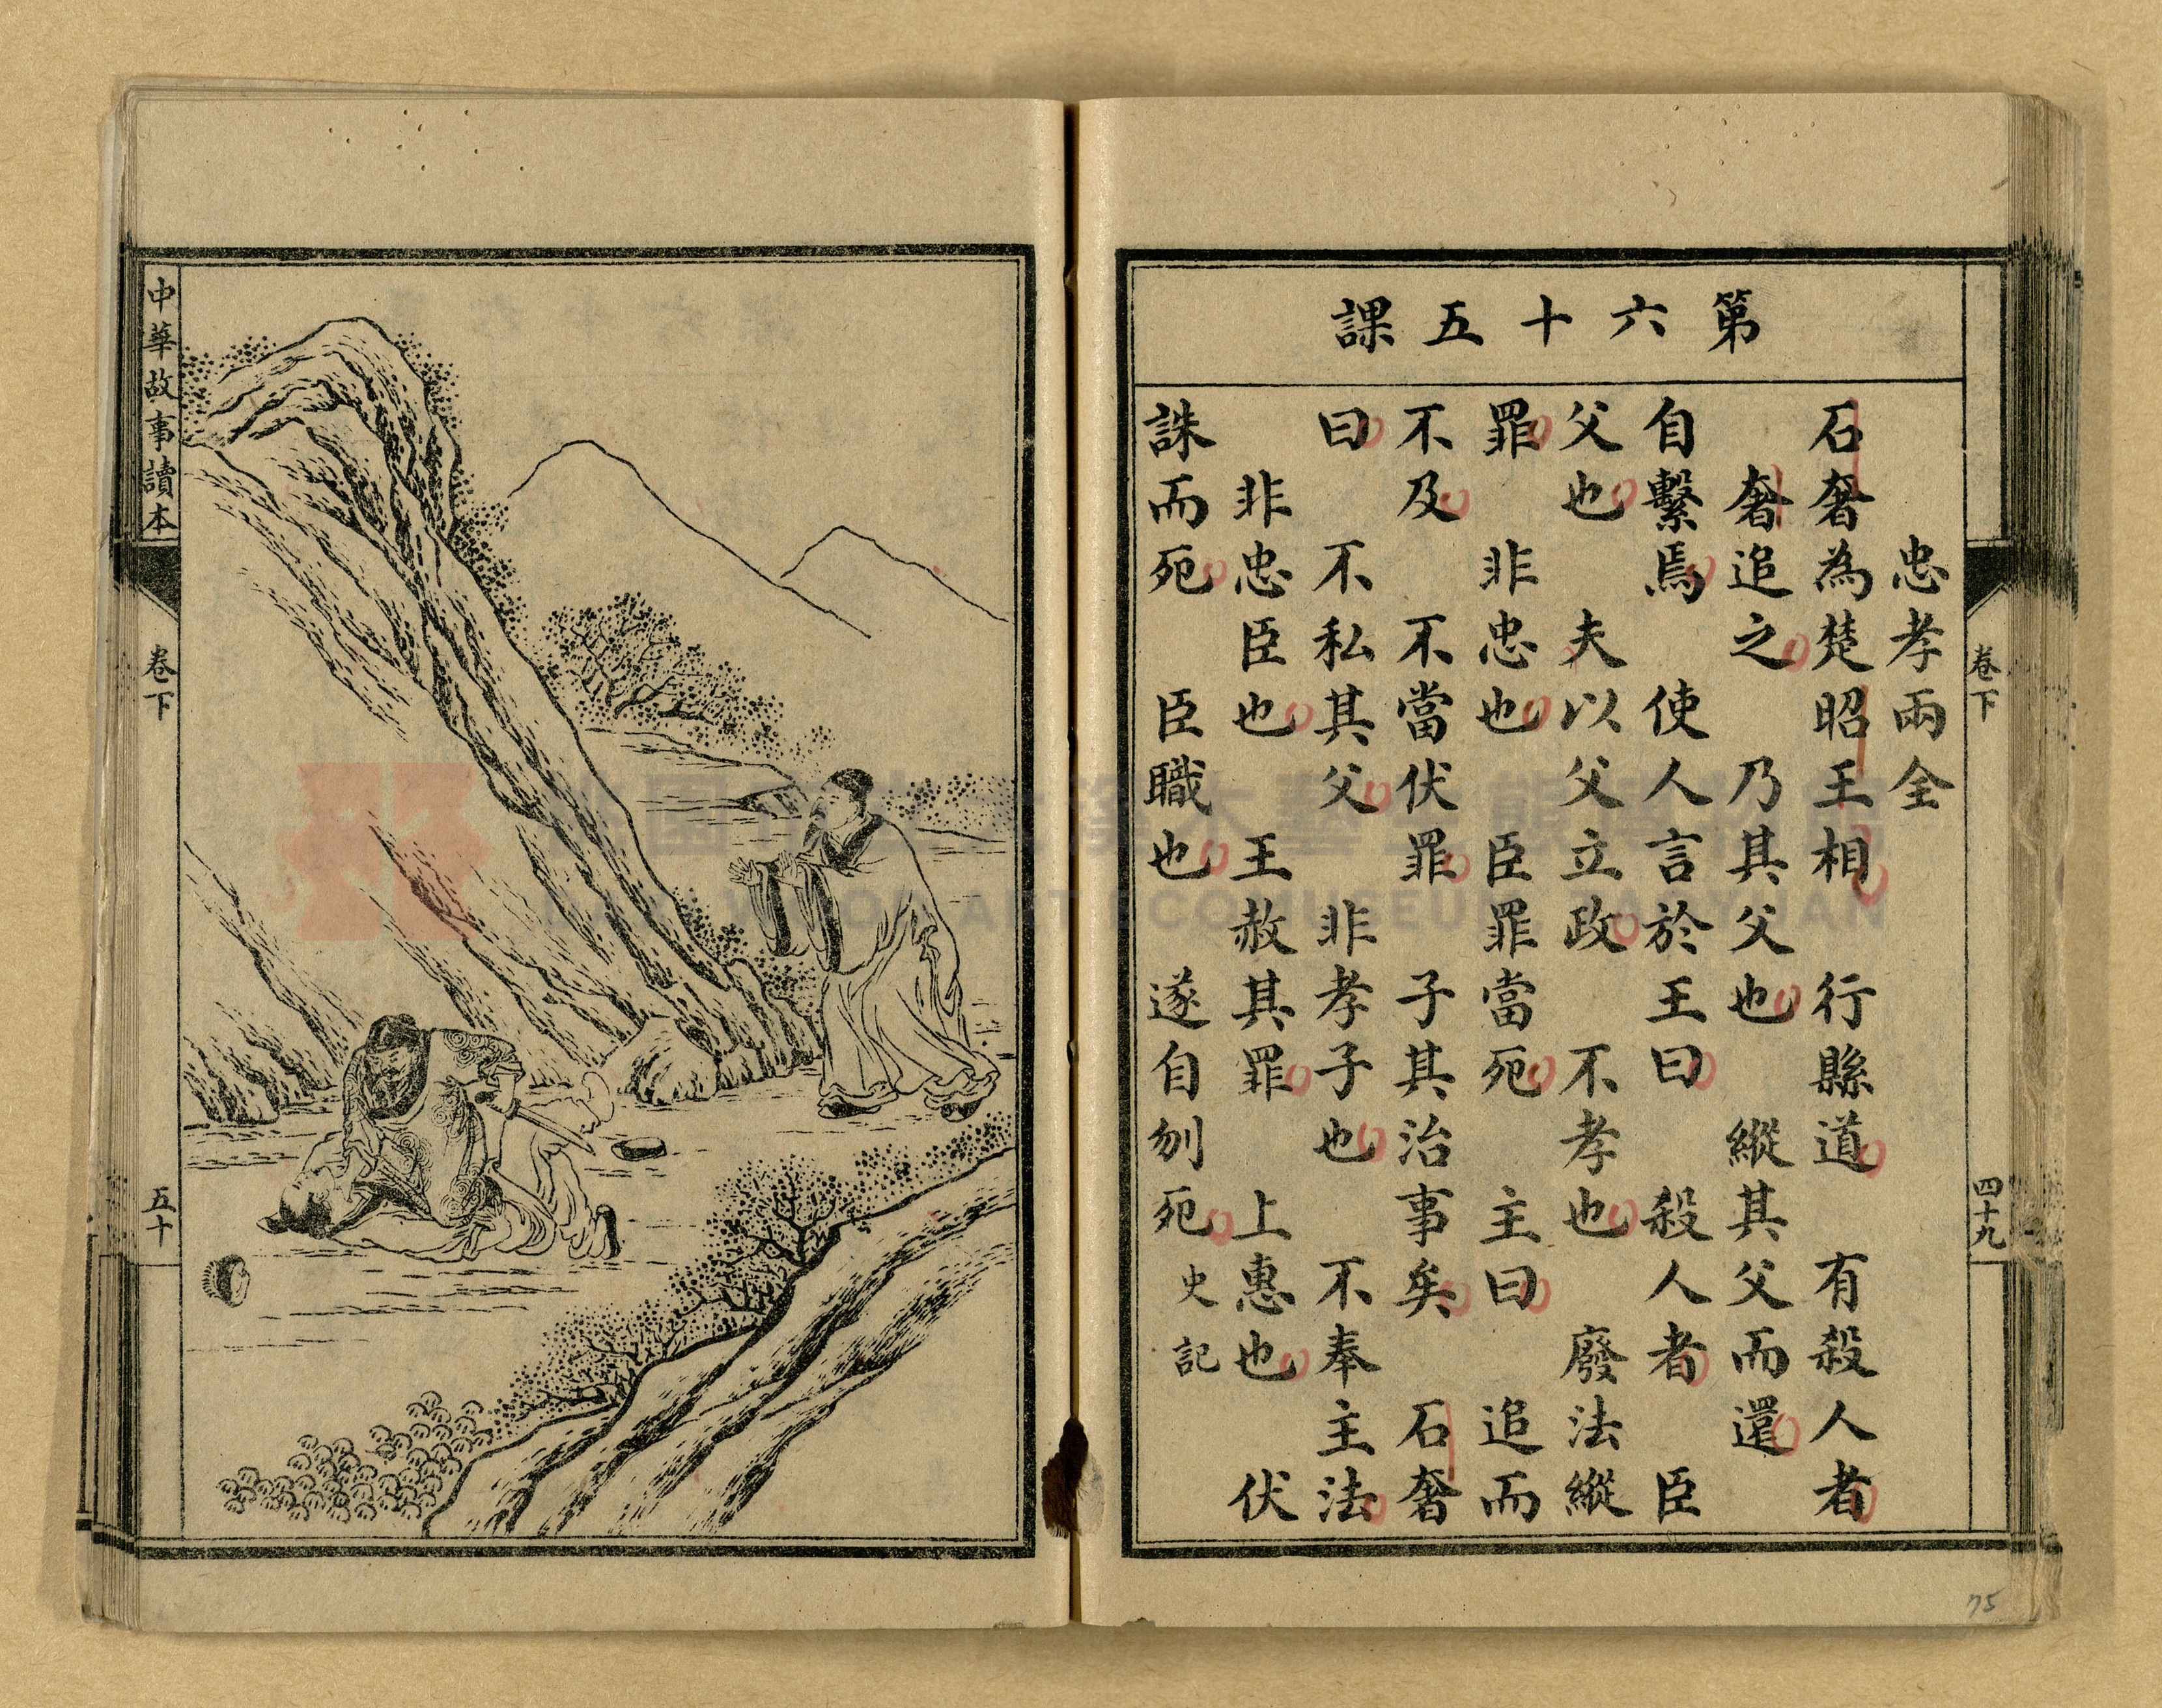 第六十五課
忠孝兩全
石奢為楚昭王相　行縣道　有殺人者
奢追之　乃其父也　縱其父而還
自繫焉　使人言於王曰　殺人者　臣
父也　夫以父立政　不孝也　廢法縱
罪　非忠也　臣罪當死　主曰　追而
不及　不當伏罪　子其治事矣　石奢
曰　不私其父　非孝子也　不奉主法
非忠臣也　王赦其罪　上惠也　伏
誅而死　臣職也　遂自刎死　史記
卷下
四十九
75
中華故事讀本
卷下
五十